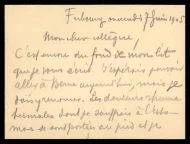 Fribourg mercredi 7 juin 1905
Mon cher collègue,
C'est encore du fond de mon lit
que je vous écris. J'espérais pouvoir
aller à Berne aujourd'hui, mais je
dois y renoncer. Les douleurs rhuma-
tismales dont je souffrais à
se sont portées au pied et je